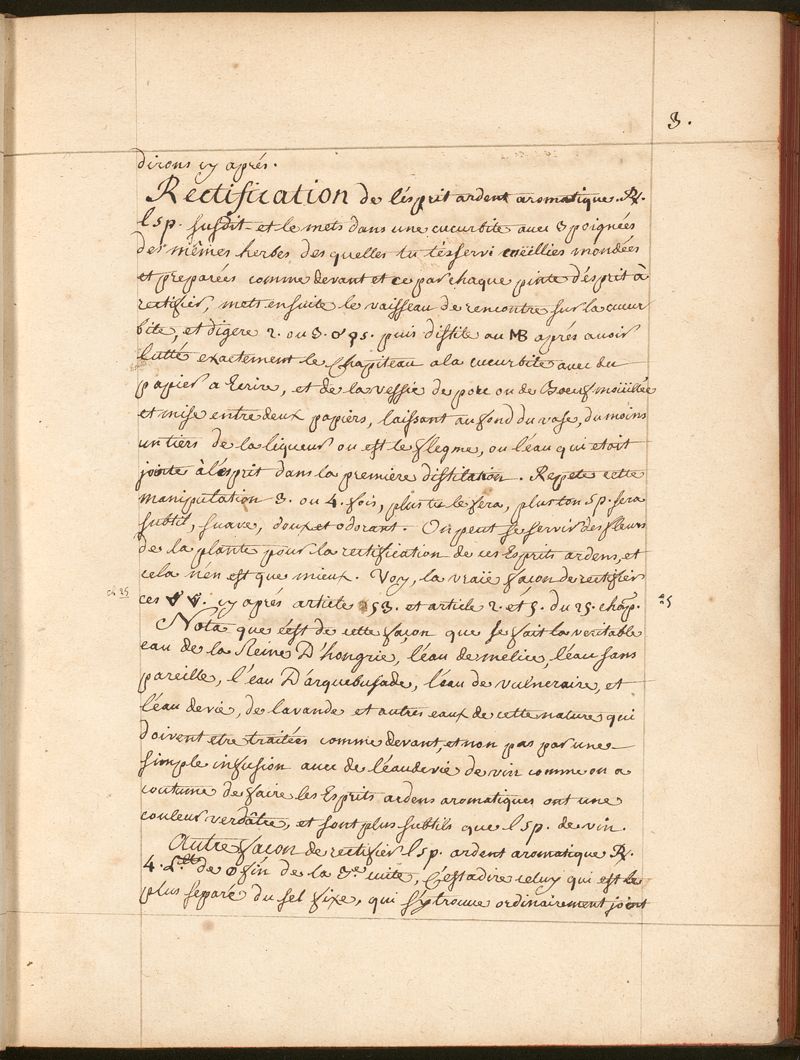 3.
dirons cy aprés.
Rectification de l'ésprit ardent aromatique. ℞.
l sp. susdit et le mets dans une cucurbite avec 3 poignées
des mêmes herbes des quelles tu t'és servi cüeillies mondées
et preparées comme devant et ce par chaque pinte d'ésprit à
rectifier, mets ensuite le vaisseau de rencontre sur la cucur
bite, et digere 2. ou 3. puis distile au MB aprés avoir
lutté exactement le Chapiteau a la cucurbite avec du
papier a Ecrire, et de la vessie de porc ou de Boeuf moüillée
et mise entre deux papiers, laissant au fond du vase, du moins
un tiers de la liqueur ou est le flegme, ou l'eau qui etoit
jointe à l'ésprit dans la premiere distilation. Repete cette
manipulation 3. ou 4. fois, plus tu le fera, plus ton sp. sera
subtil, suave, doux et odorant. On peut se servir des fleurs
de la plante pour la rectification de ces Esprits ardens, et
cela n'en est que mieux. Voy, la vraïe façon de rectifier
ces cy aprés article 253. et article 2. et 5. du 25. chap.
25
Nota que c'ést de cette façon que se fait la veritable
eau de la Reine D'hongrie, l'eau de melice, l'eau sans
pareille, l'eau D'arquebusade, l'eau de vulneraire, et
l'eau de vie, de lavande et autres eaux de cette nature qui
doivent etre traitées comme devant, et non pas par une
simple infusion avec de l'eau de vie de vin comme on a
coutume de faire les Esprits ardens aromatiques ont une
couleur verdâtre, et sont plus subtils que l sp. de vin.
Autre façon de rectifier l sp. ardent aromatique ℞.
4. de fin de la 3.e cuite, C'est a dire celuy qui est le
plus separé du sel fixe, qui s'y trouve ordinairement joint